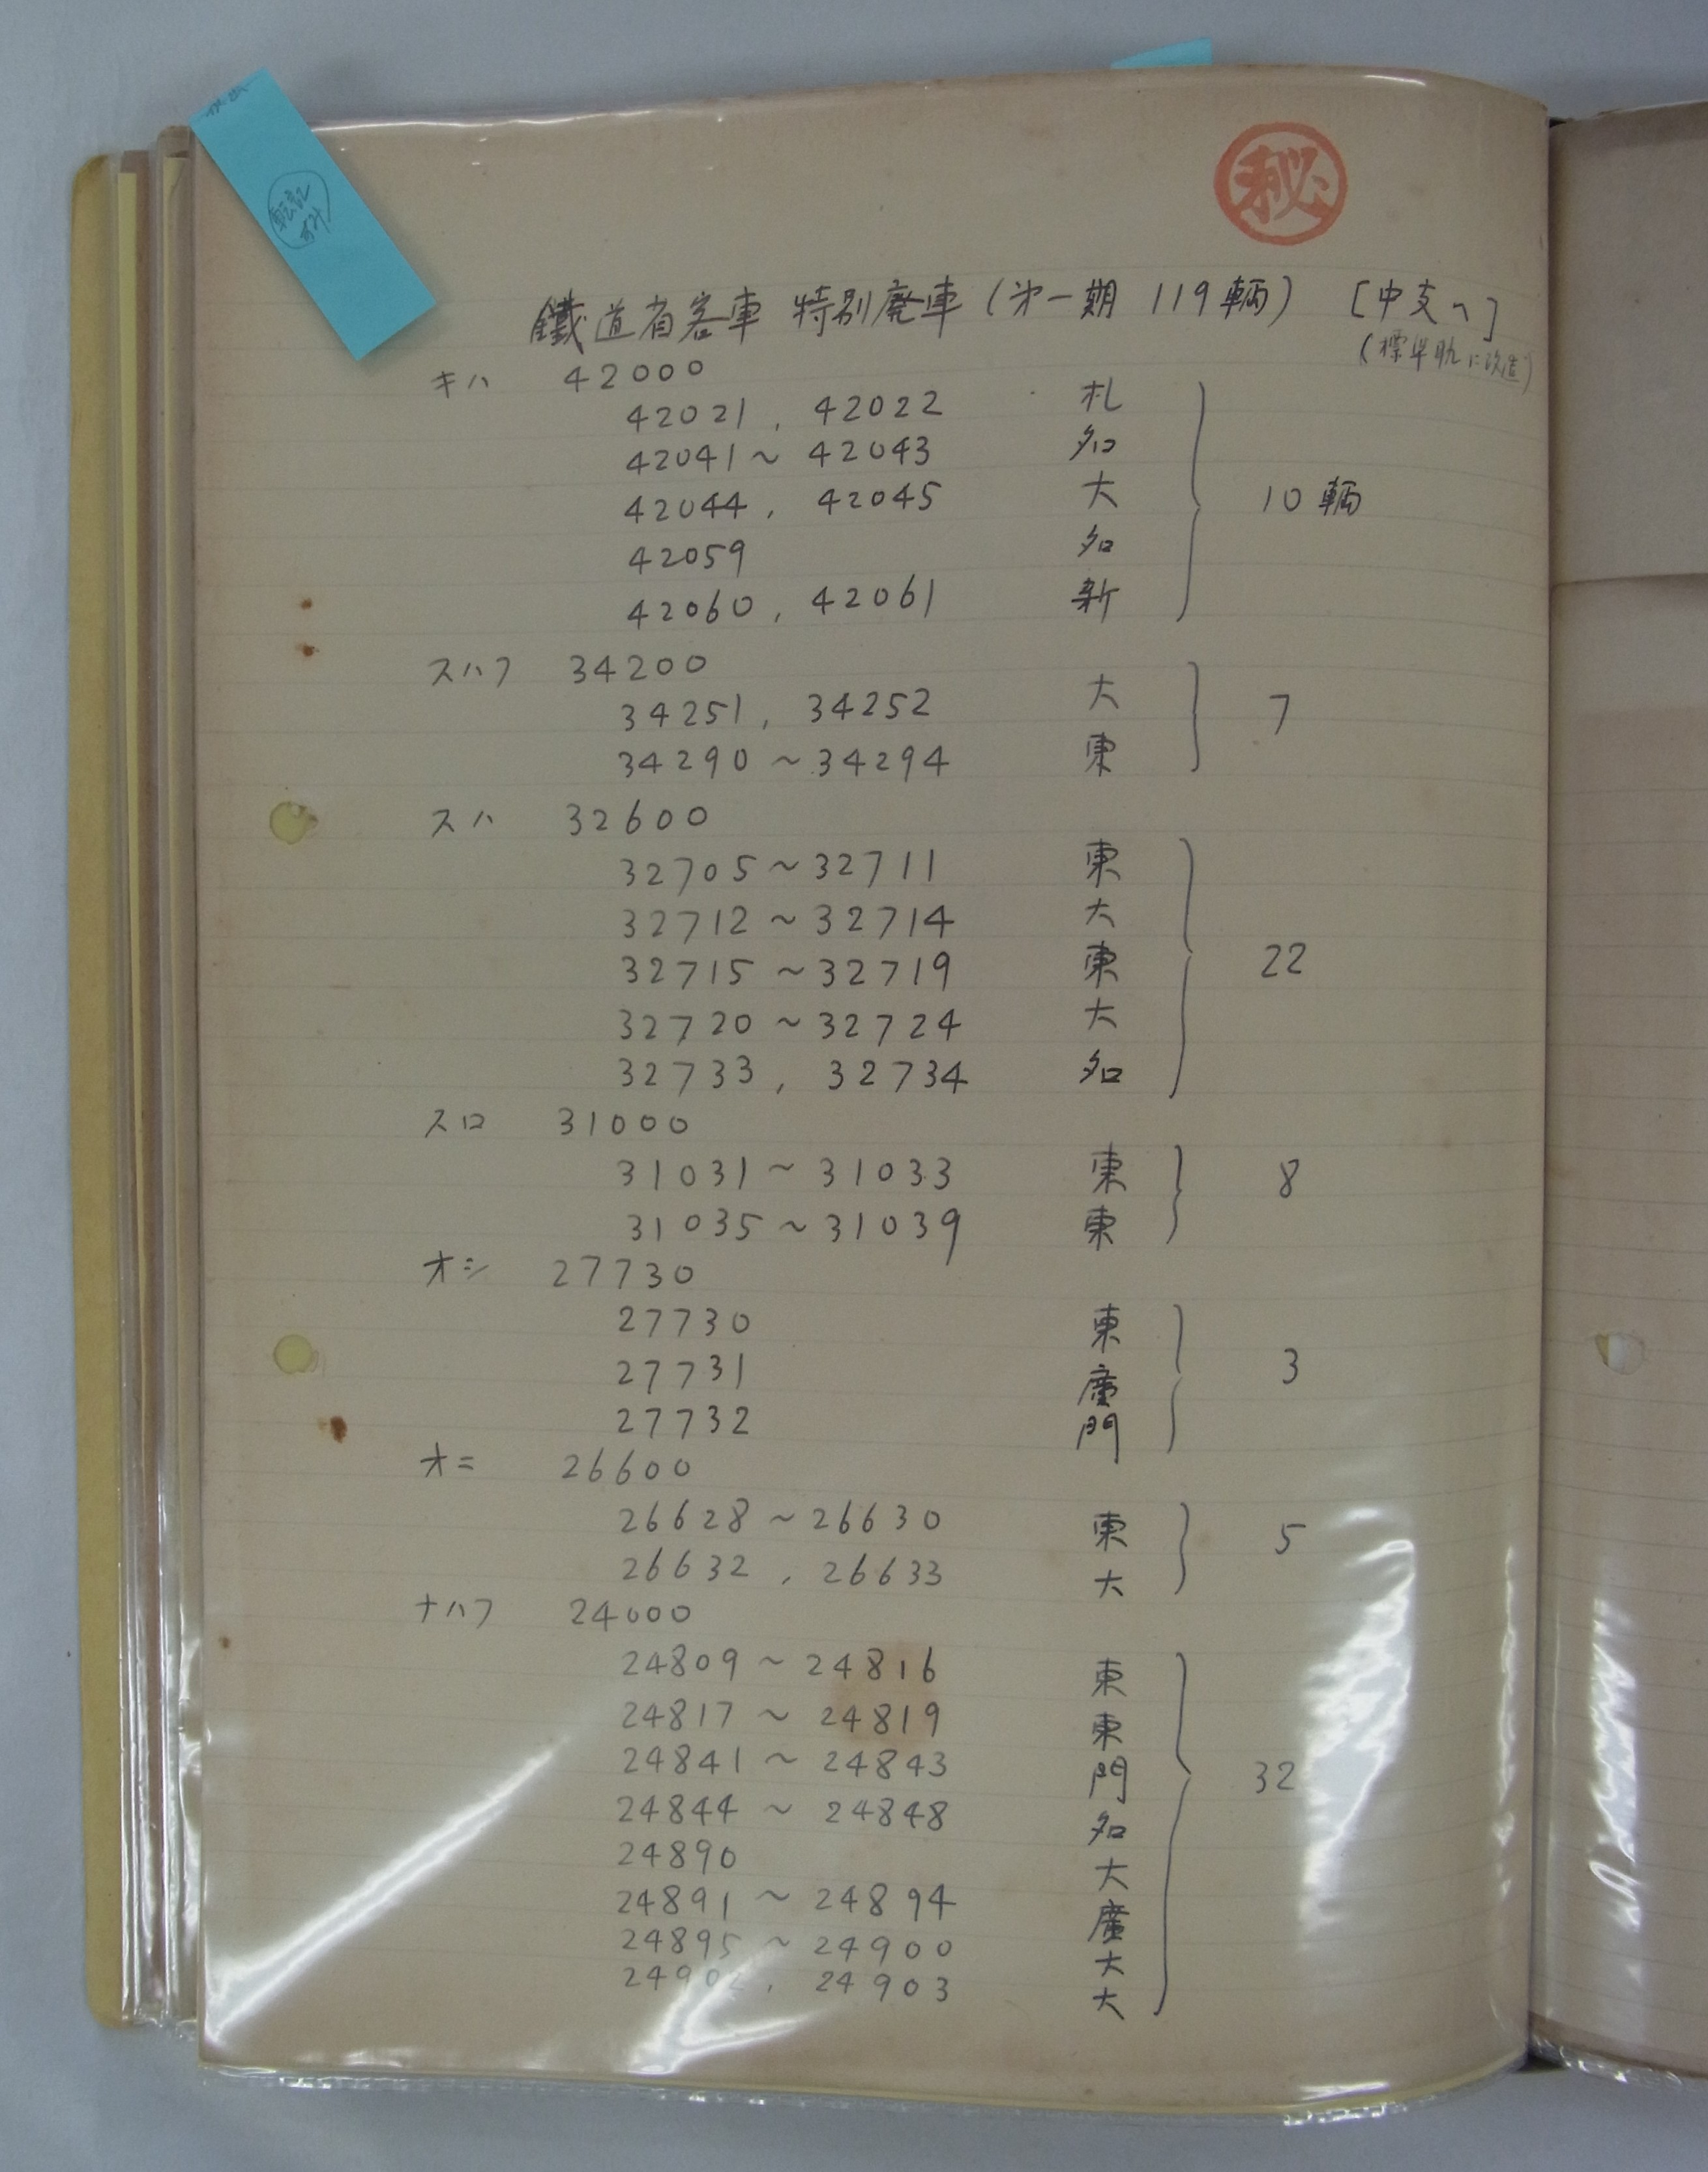 ㊙
鐵道省客車 特別廃車(第一期 119輌) [中支へ]
(標準軌に改造)
キハ 42000
42021, 42022 札
42041~42043 名
42044, 42045 大
42059 名
42060, 42061 新
10輌
スハフ 34200
34251, 34252 大
34290~34294 東
7
スハ 32600
32705~32711 東
32712~32714 大
32715~32719 東
32720~32724 大
32733, 32734 名
22
スロ 31000
31031~31033 東
31035~31039 東
8
オシ 27730
27730 東
27731 廣
27732 門
3
オニ 26600
26628~26630 東
26632, 26633 大
5
ナハフ 24000
24809~24816 東
24817~24819 東
24841~24843 門
24844~24848 名
24890 大
24891~24894 廣
24895~24900 大
24902, 24903 大
32
転記